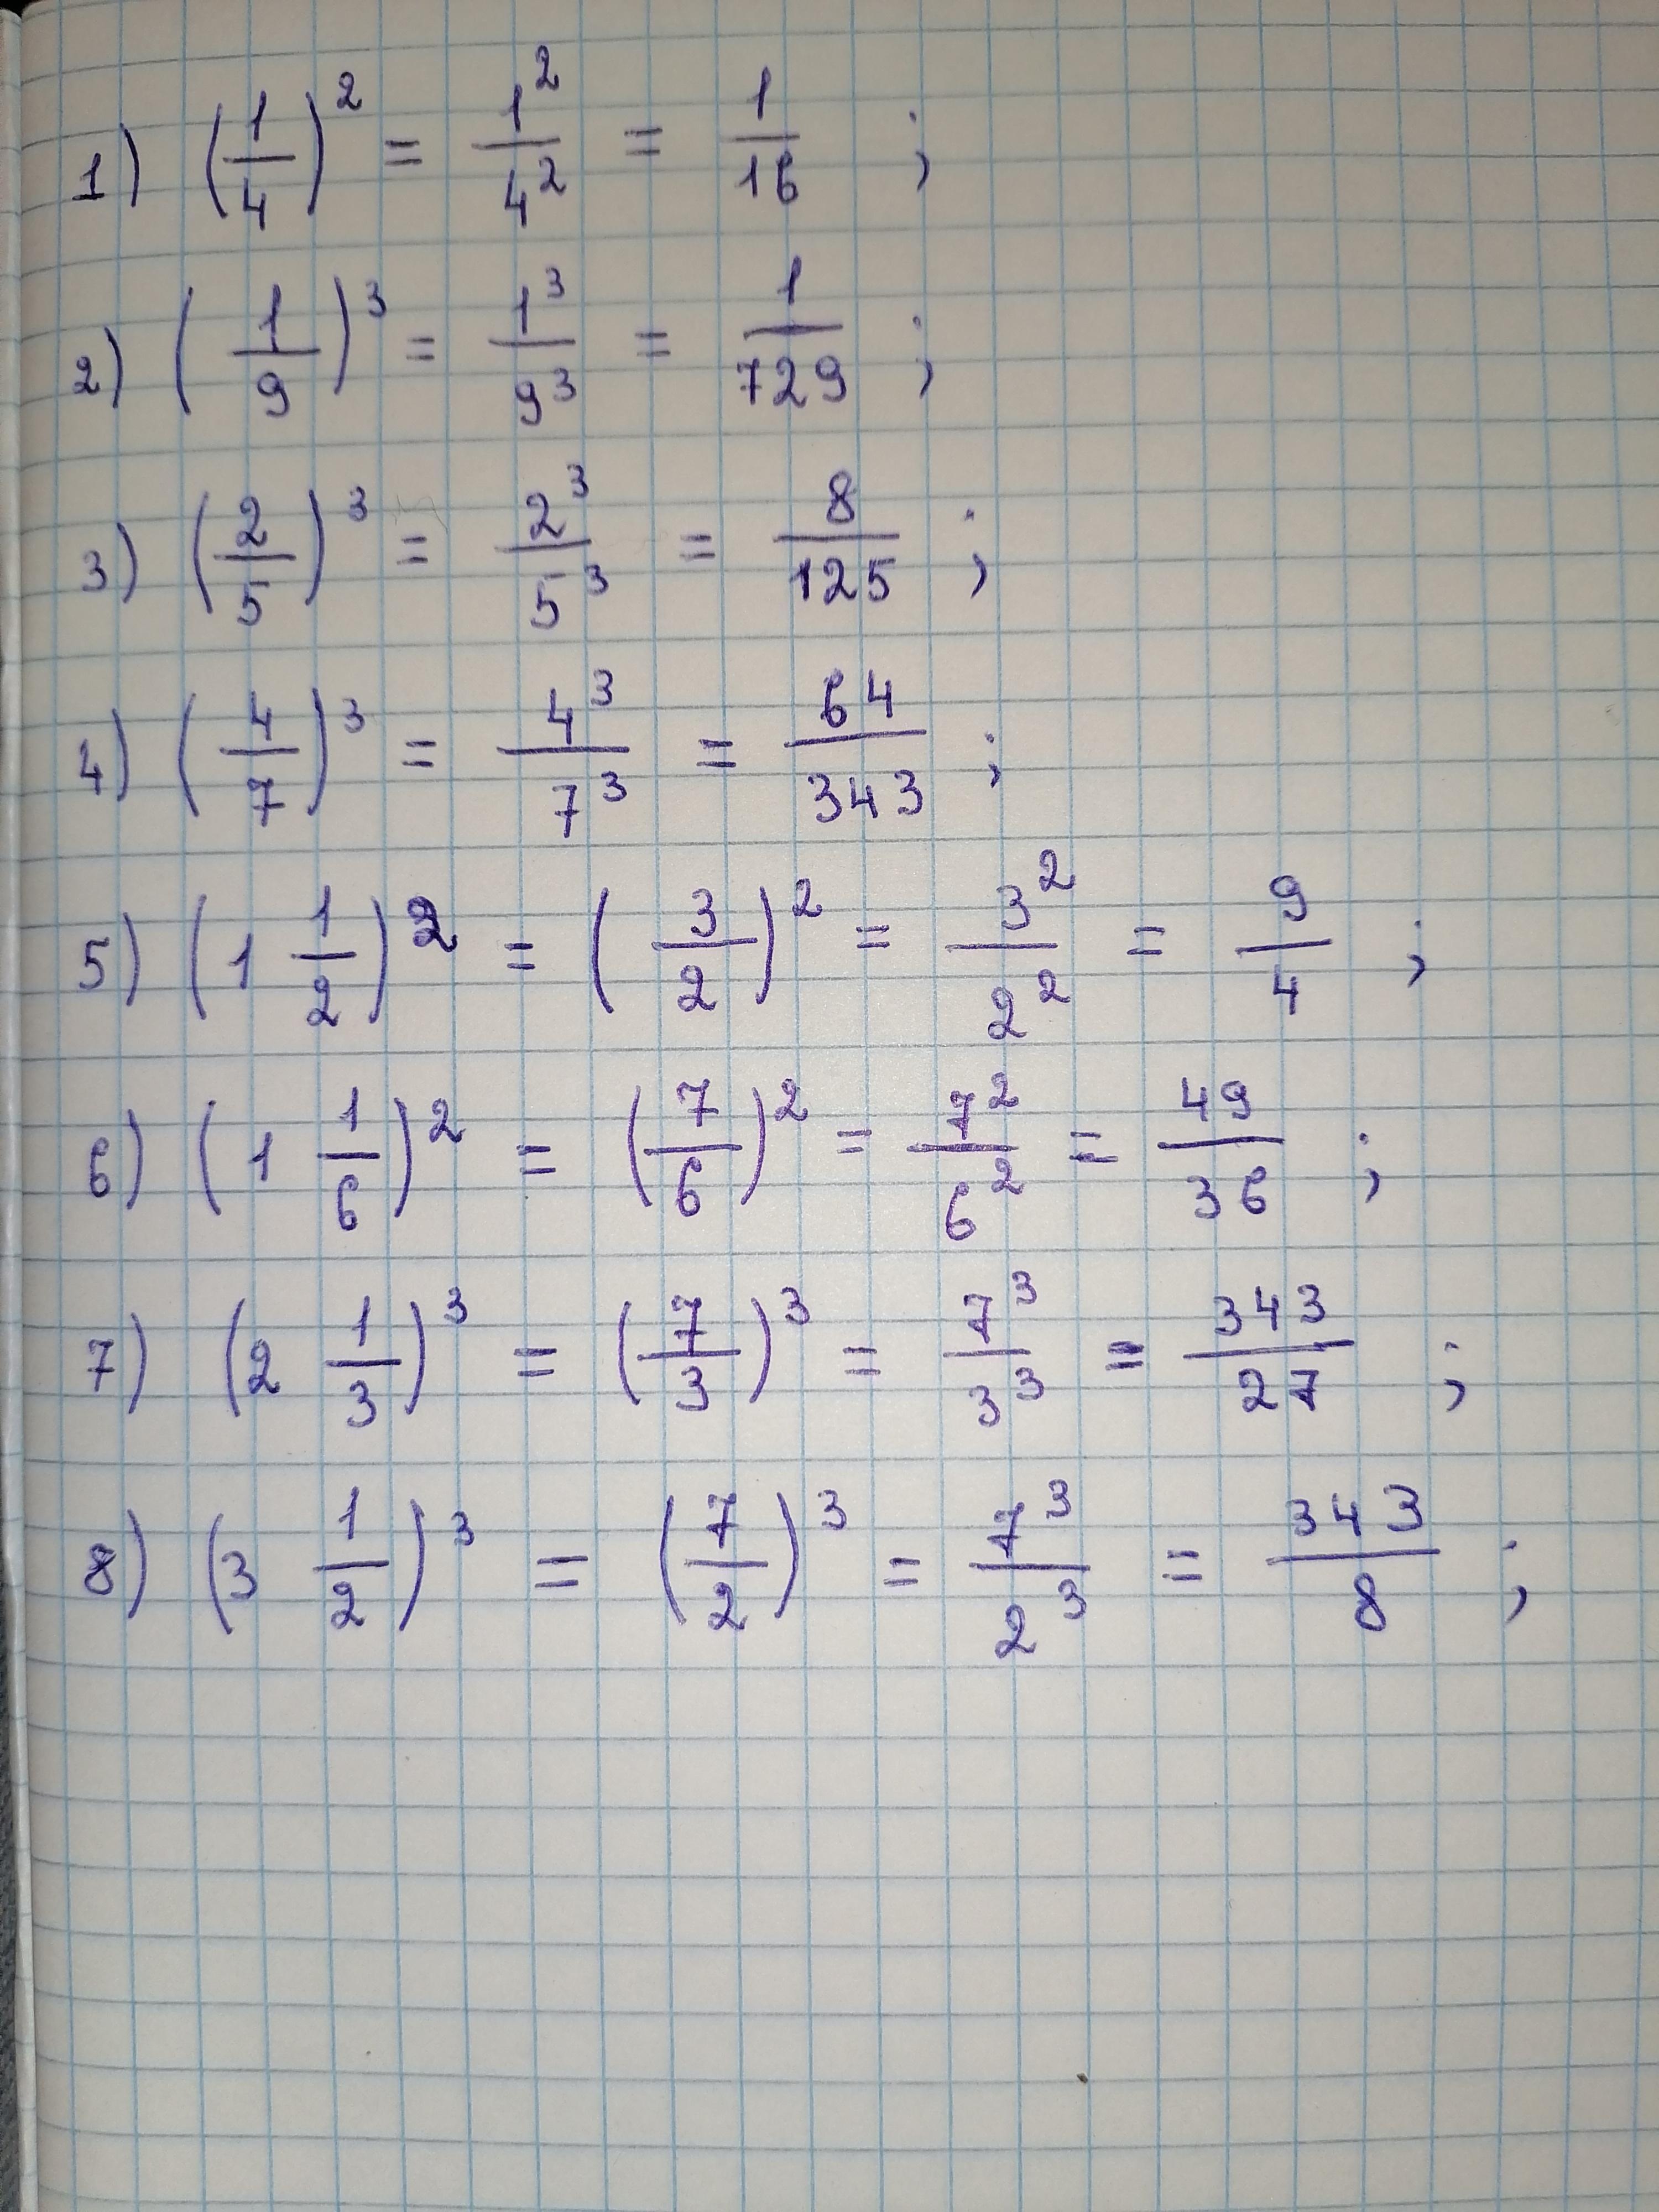 1) (1/4)² = 1²/4² = 1/16 ;
2) (1/9)³ = 1³/9³ = 1/729 ;
3) (2/5)³ = 2³/5³ = 8/125 ;
4) (4/7)³ = 4³/7³ = 64/343 ;
5) (1 1/2)² = (3/2)² = 3²/2² = 9/4 ;
6) (1 1/6)² = (7/6)² = 7²/6² = 49/36 ;
7) (2 1/3)³ = (7/3)³ = 7³/3³ = 343/27 ;
8) (3 1/2)³ = (7/2)³ = 7³/2³ = 343/8 ;